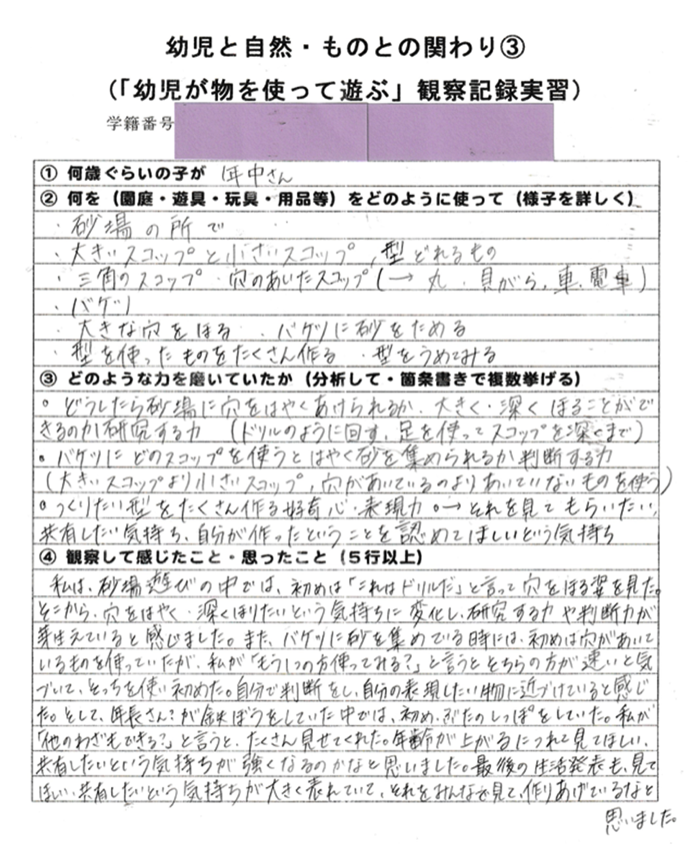 幼児と自然・ものとの関わり③
（「幼児が物を使って遊ぶ」観察記録実習）
学籍番号
① 何歳ぐらいの子が 年中さん
② 何を（園庭・遊具・玩具・用品等）をどのように使って（様子を詳しく）
・砂場の所で
・大きいスコップと小さいスコップ，型どれるもの
・三角のスコップ ・穴のあいたスコップ（→ 丸・貝がら，車，電車）
・バケツ
・大きな穴をほる ・バケツに砂をためる
・型を使ったものをたくさん作る ・型をうめてみる
③ どのような力を磨いていたか（分析して・箇条書きで複数挙げる）
。どうしたら砂場に穴をはやくあけられるか、大きく・深くほることがで
きるのか研究する力 （ドリルのように回す，足を使ってスコップを深くまで）
。バケツにどのスコップを使うとはやく砂を集められるか判断する力
（大きいスコップより小さいスコップ，穴があいているのよりあいていないものを使う）
。つくりたい型をたくさん作る好奇心・表現力。→それを見てもらいたい，
共有したい気持ち、自分が作ったということを認めてほしいという気持ち
④ 観察して感じたこと・思ったこと（５行以上）
私は、砂場遊びの中では、初めは「これはドリルだ」と言って穴をほる姿を見た。
そこから、穴をはやく・深くほりたいという気持ちに変化し、研究する力や判断力が
芽生えていると感じました。また、バケツに砂を集めている時には、初めは穴があいて
いるものを使っていたが、私が「もう1つの方使ってみる？」と言うとそちらの方が速いと気
づいて、そっちを使い初めた。自分で判断をし、自分の表現したい物に近づけていると感じ
た。そして、年長さん？が鉄ぼうをしていた中では、初め、ぶたのしっぽをしていた。私が
「他のわざもできる？」と言うと、たくさん見せてくれた。年齢が上がるにつれて見てほしい、
共有したいという気持ちが強くなるのかなと思いました。最後の生活発表も、見て
ほしい、共有したいという気持ちが大きく表れていて、それをみんなで見て、作りあげているなと
思いました。